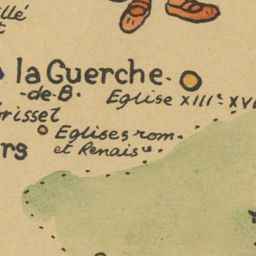 illé
t
la Guerche
-de-B.
Eglise XIIIe XVI
risset
Eglises rom.
et Renaisce.
rs